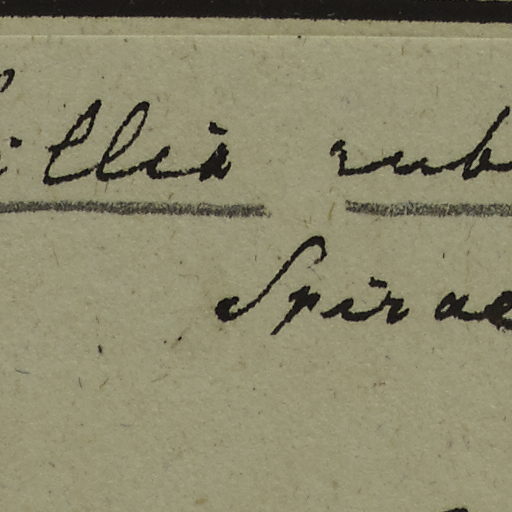 illia rub
Spirae